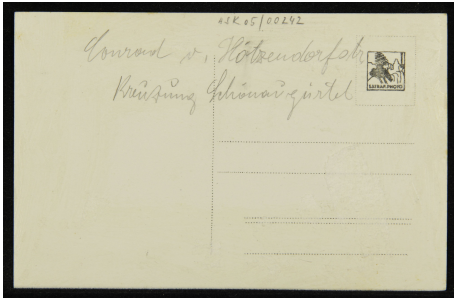 ASK 05/00242
Conrad v. Hötzendorfstr
Kreuzung Schönaugürtel